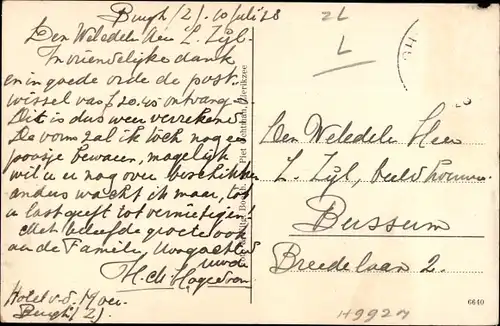 Burgh (Z). 10 Juli 28
Den Weledele Heer L. Zijl.
In vriendelijke dank
en in goede orde de post-
wissel van ƒ 20.45 ontvang
Dit is dus weer verrekend
De vorm zal ik toch nog een
poosje bewaren, mogelijk
wil u er nog over beschikken
anders wacht ik maar, tot
u last geeft tot vernietigen!
Met beleefde groete ook
aan de Familie, Hoogachtend
H. de
Hotel v. d. Moer
Burgh (Z)
Piet Ochtman, Zierikzee
L
Den Weledele Heer
L. Zijl, beeldhouwer
Bussum
Breedelaan 2.
6640
H9927